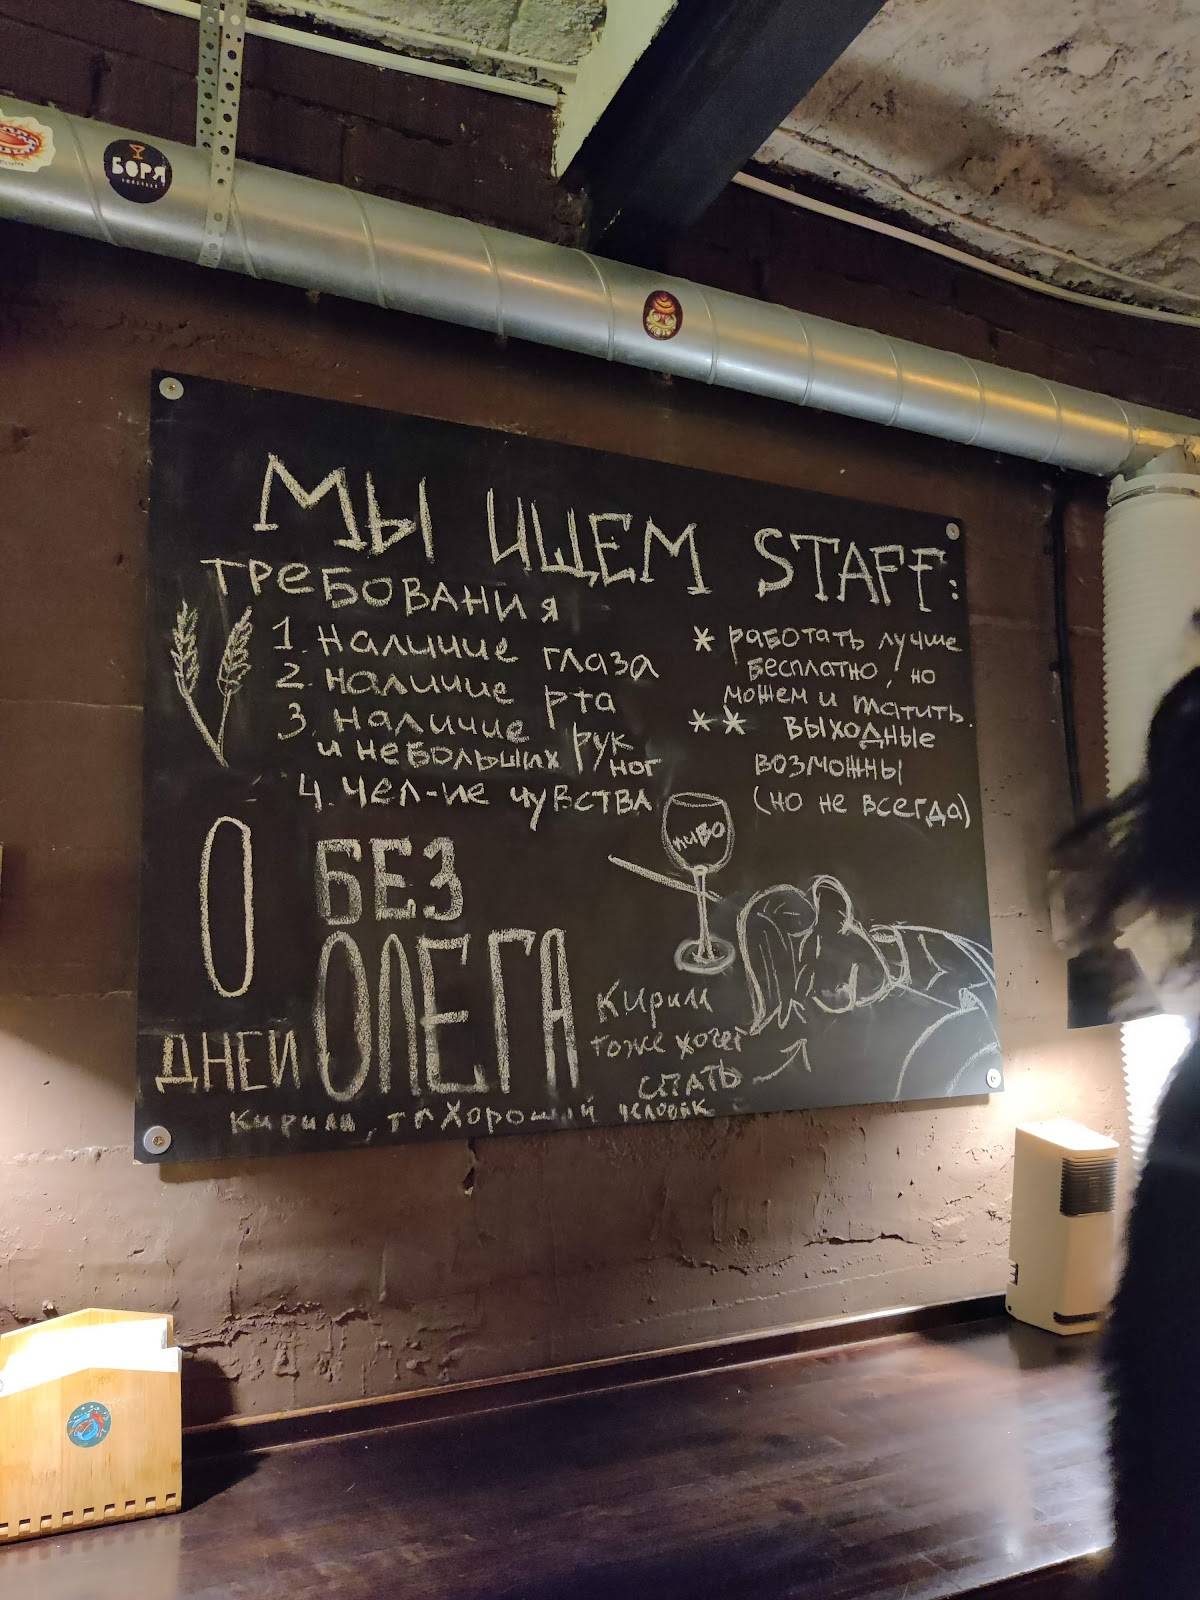 БОРЯ
МЫ ИЩЕМ STAFF:
ТРЕБОВАНИЯ
1. наличие глаза
2. наличие рта
3. наличие рук
и небольших ног
4. чел-ие чувства
* работать лучше
бесплатно, но
можем и платить.
** выходные
возможны
(но не всегда)
пиво
0 БЕЗ
ДНЕЙ ОЛЕГА
Кирилл
тоже хочет
спать
Кирилл, ты хороший человек